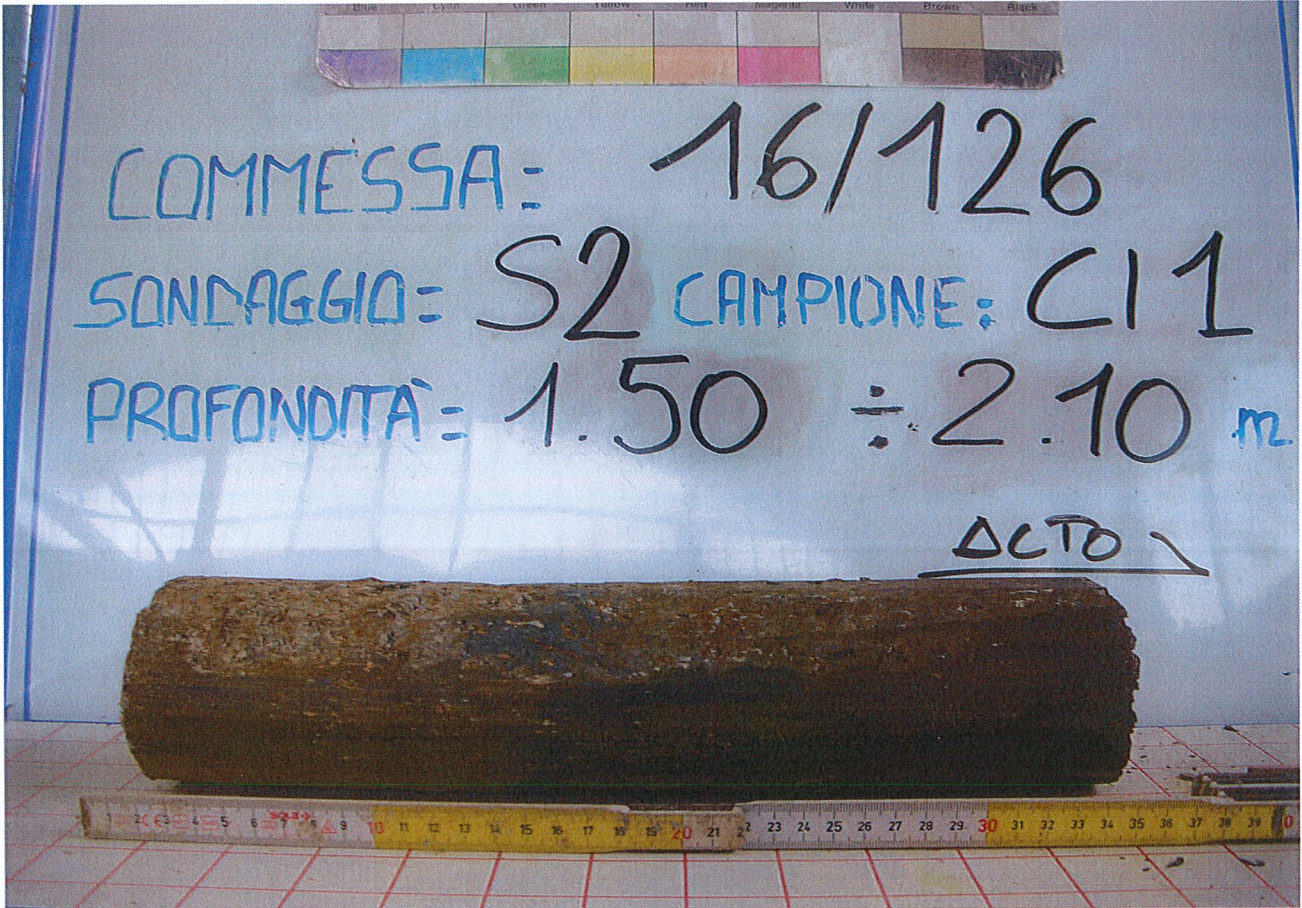 Blue Cyan Green Yellow Red Magenta White Brown Black
COMMESSA: 16/126
SONDAGGIO: S2 CAMPIONE: CI1
PROFONDITÀ: 1.50 ÷ 2.10 m
ACTO
1 2 CE 3 4 5 6 7 8 9 10 11 12 13 14 15 16 17 18 19 20 21 2 23 24 25 26 27 28 29 30 31 32 33 34 35 36 37 38 39 0
sola